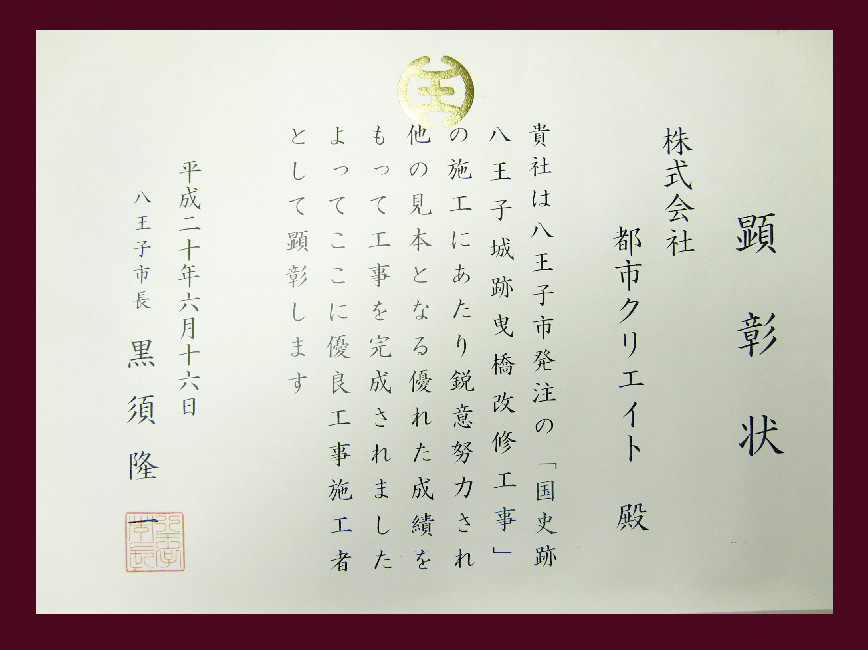 顕彰状
株式会社
都市クリエイト 殿
貴社は八王子市発注の「国史跡
八王子城跡曳橋改修工事」
の施工にあたり鋭意努力され
他の見本となる優れた成績を
もって工事を完成されました
よってここに優良工事施工者
として顕彰します
平成二十年六月十六日
八王子市長 黒須隆一